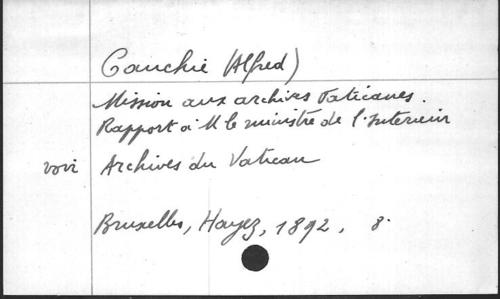 Cauchie (Alfred)
Mission aux archives Vaticanes.
Rapport à M le ministre de l'Interieur
voir Archives du Vatican
Bruxelles, Hayez, 1892, 8°